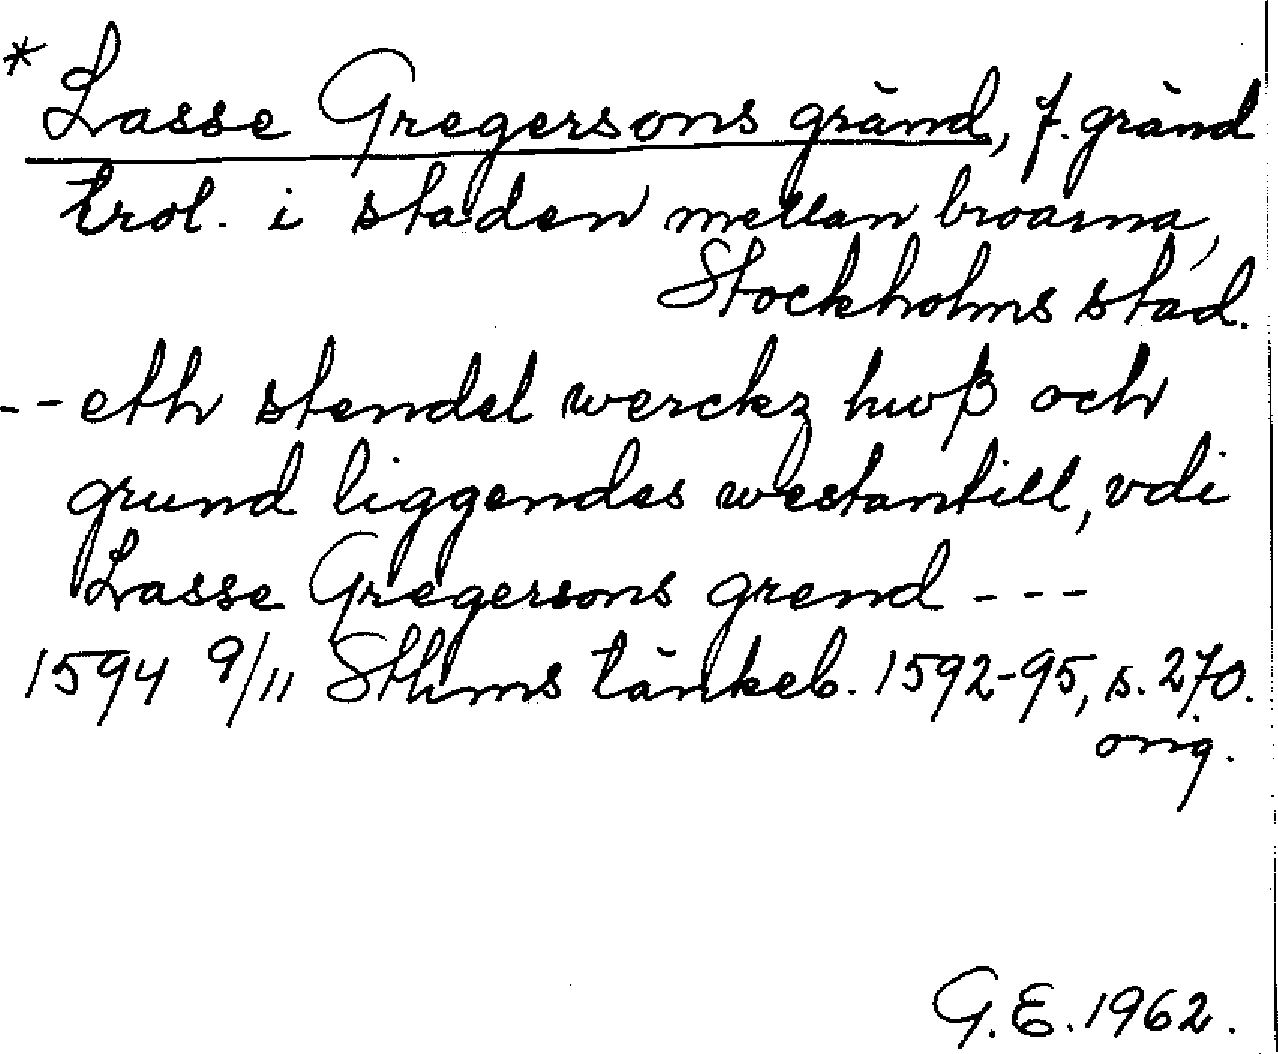 * Lasse Gregersons gränd, f. gränd
trol. i staden mellan broarna,
Stockholms stad.
-- eth stendel werckz hwß och
grund liggendes westantill, vdi
Lasse Gregersons grend ---
1594 9/11 Sthms tänkeb. 1592-95, s. 270.
orig.
G.E. 1962.